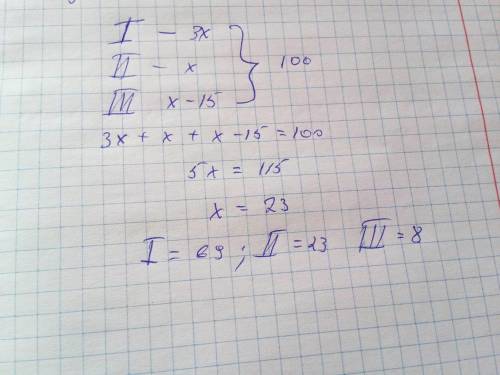 I - 3x
II - x } 100
III x - 15
3x + x + x - 15 = 100
5x = 115
x = 23
I = 69 ; II = 23 III = 8